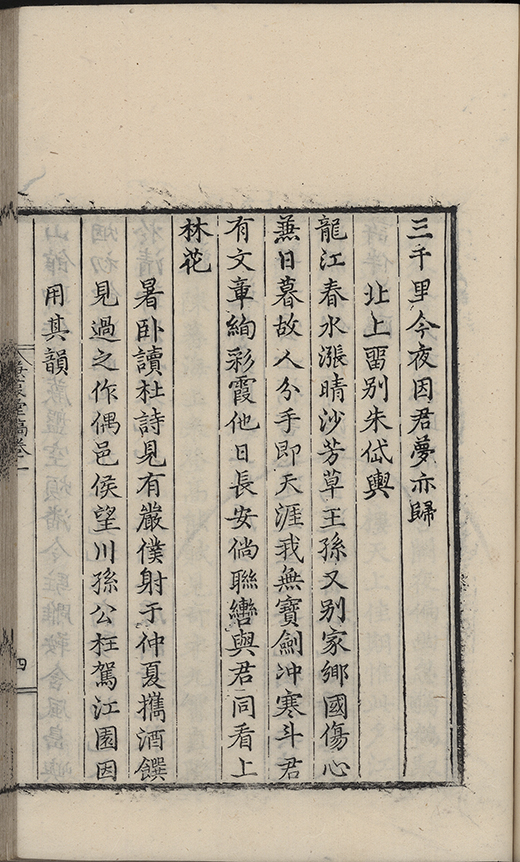 三千里今夜因君夢亦歸
北上畱別朱岱輿
龍江春水漲晴沙芳草王孫又別家鄉國傷心
兼日暮故人分手即天涯我無寶劍冲寒斗君
有文章絢彩霞他日長安倘聯轡與君同看上
林花
暑卧讀杜詩見有嚴僕射于仲夏攜酒饌
見過之作偶邑侯望川孫公枉駕江園因
用其韻
堂稿卷一
四